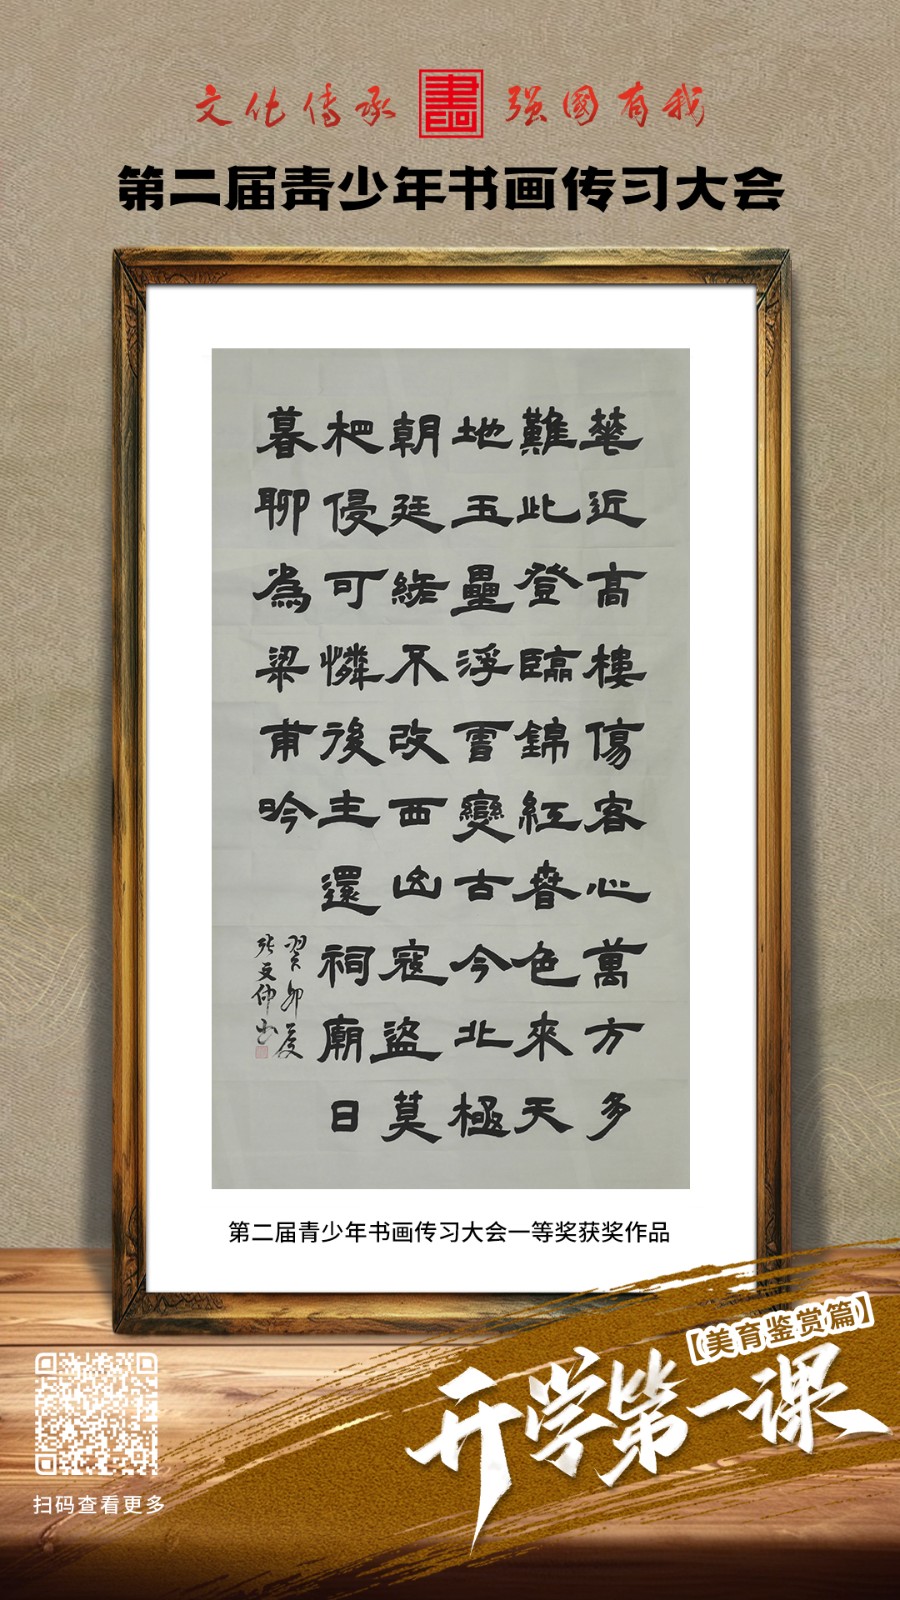 文化传承 强國有我
第二届青少年书画传习大会
華近高樓傷客心萬方多
難此登臨錦紅春色來天
地玉壘浮雲變古今北極
朝廷終不改西山寇盜莫
杷侵可憐後主還祠廟日
暮聊為梁甫吟
癸卯夏
张文仲书
第二届青少年书画传习大会一等奖获奖作品
【美育鉴赏篇】
开学第一课
扫码查看更多